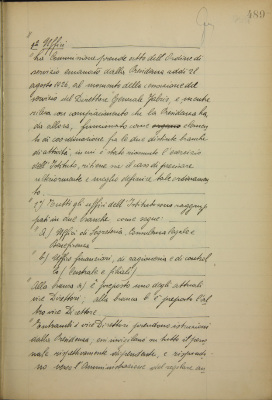 189
"
1º Uffici
"La Commissione prende atto dell'Ordine di
servizio emanato dalla Presidenza addì 21
agosto 1926, al momento della rimozione del
servizio del Direttore Generale, e mentre
rileva con compiacimento che la Presidenza ha,
da allora, funzionato come elemen-
to di coordinazione fra le due distinte branche
di attività, in cui è stato ripartito l'esercizio
dell'Istituto, ritiene sia il caso di precisare
ulteriormente e meglio definire tale ordinamen-
to.
"1º) Tutti gli uffici dell'Istituto sono raggrup-
pati in due branche come segue:
"a) Uffici di Segreteria, Consulenza legale e
Beneficenza
"b) Uffici finanziari, di ragioneria e di control-
lo (Centrale e filiali)
"Alla branca a) è preposto uno degli attuali
vice Direttori, alla branca b) è preposto l'al-
tro vice Direttore
"Entrambi i vice Direttori prendono istruzioni
dalla Presidenza, comunicano con tutto il perso-
nale rispettivamente dipendente, e rispondo-
no verso l'Amministrazione del regolare an-